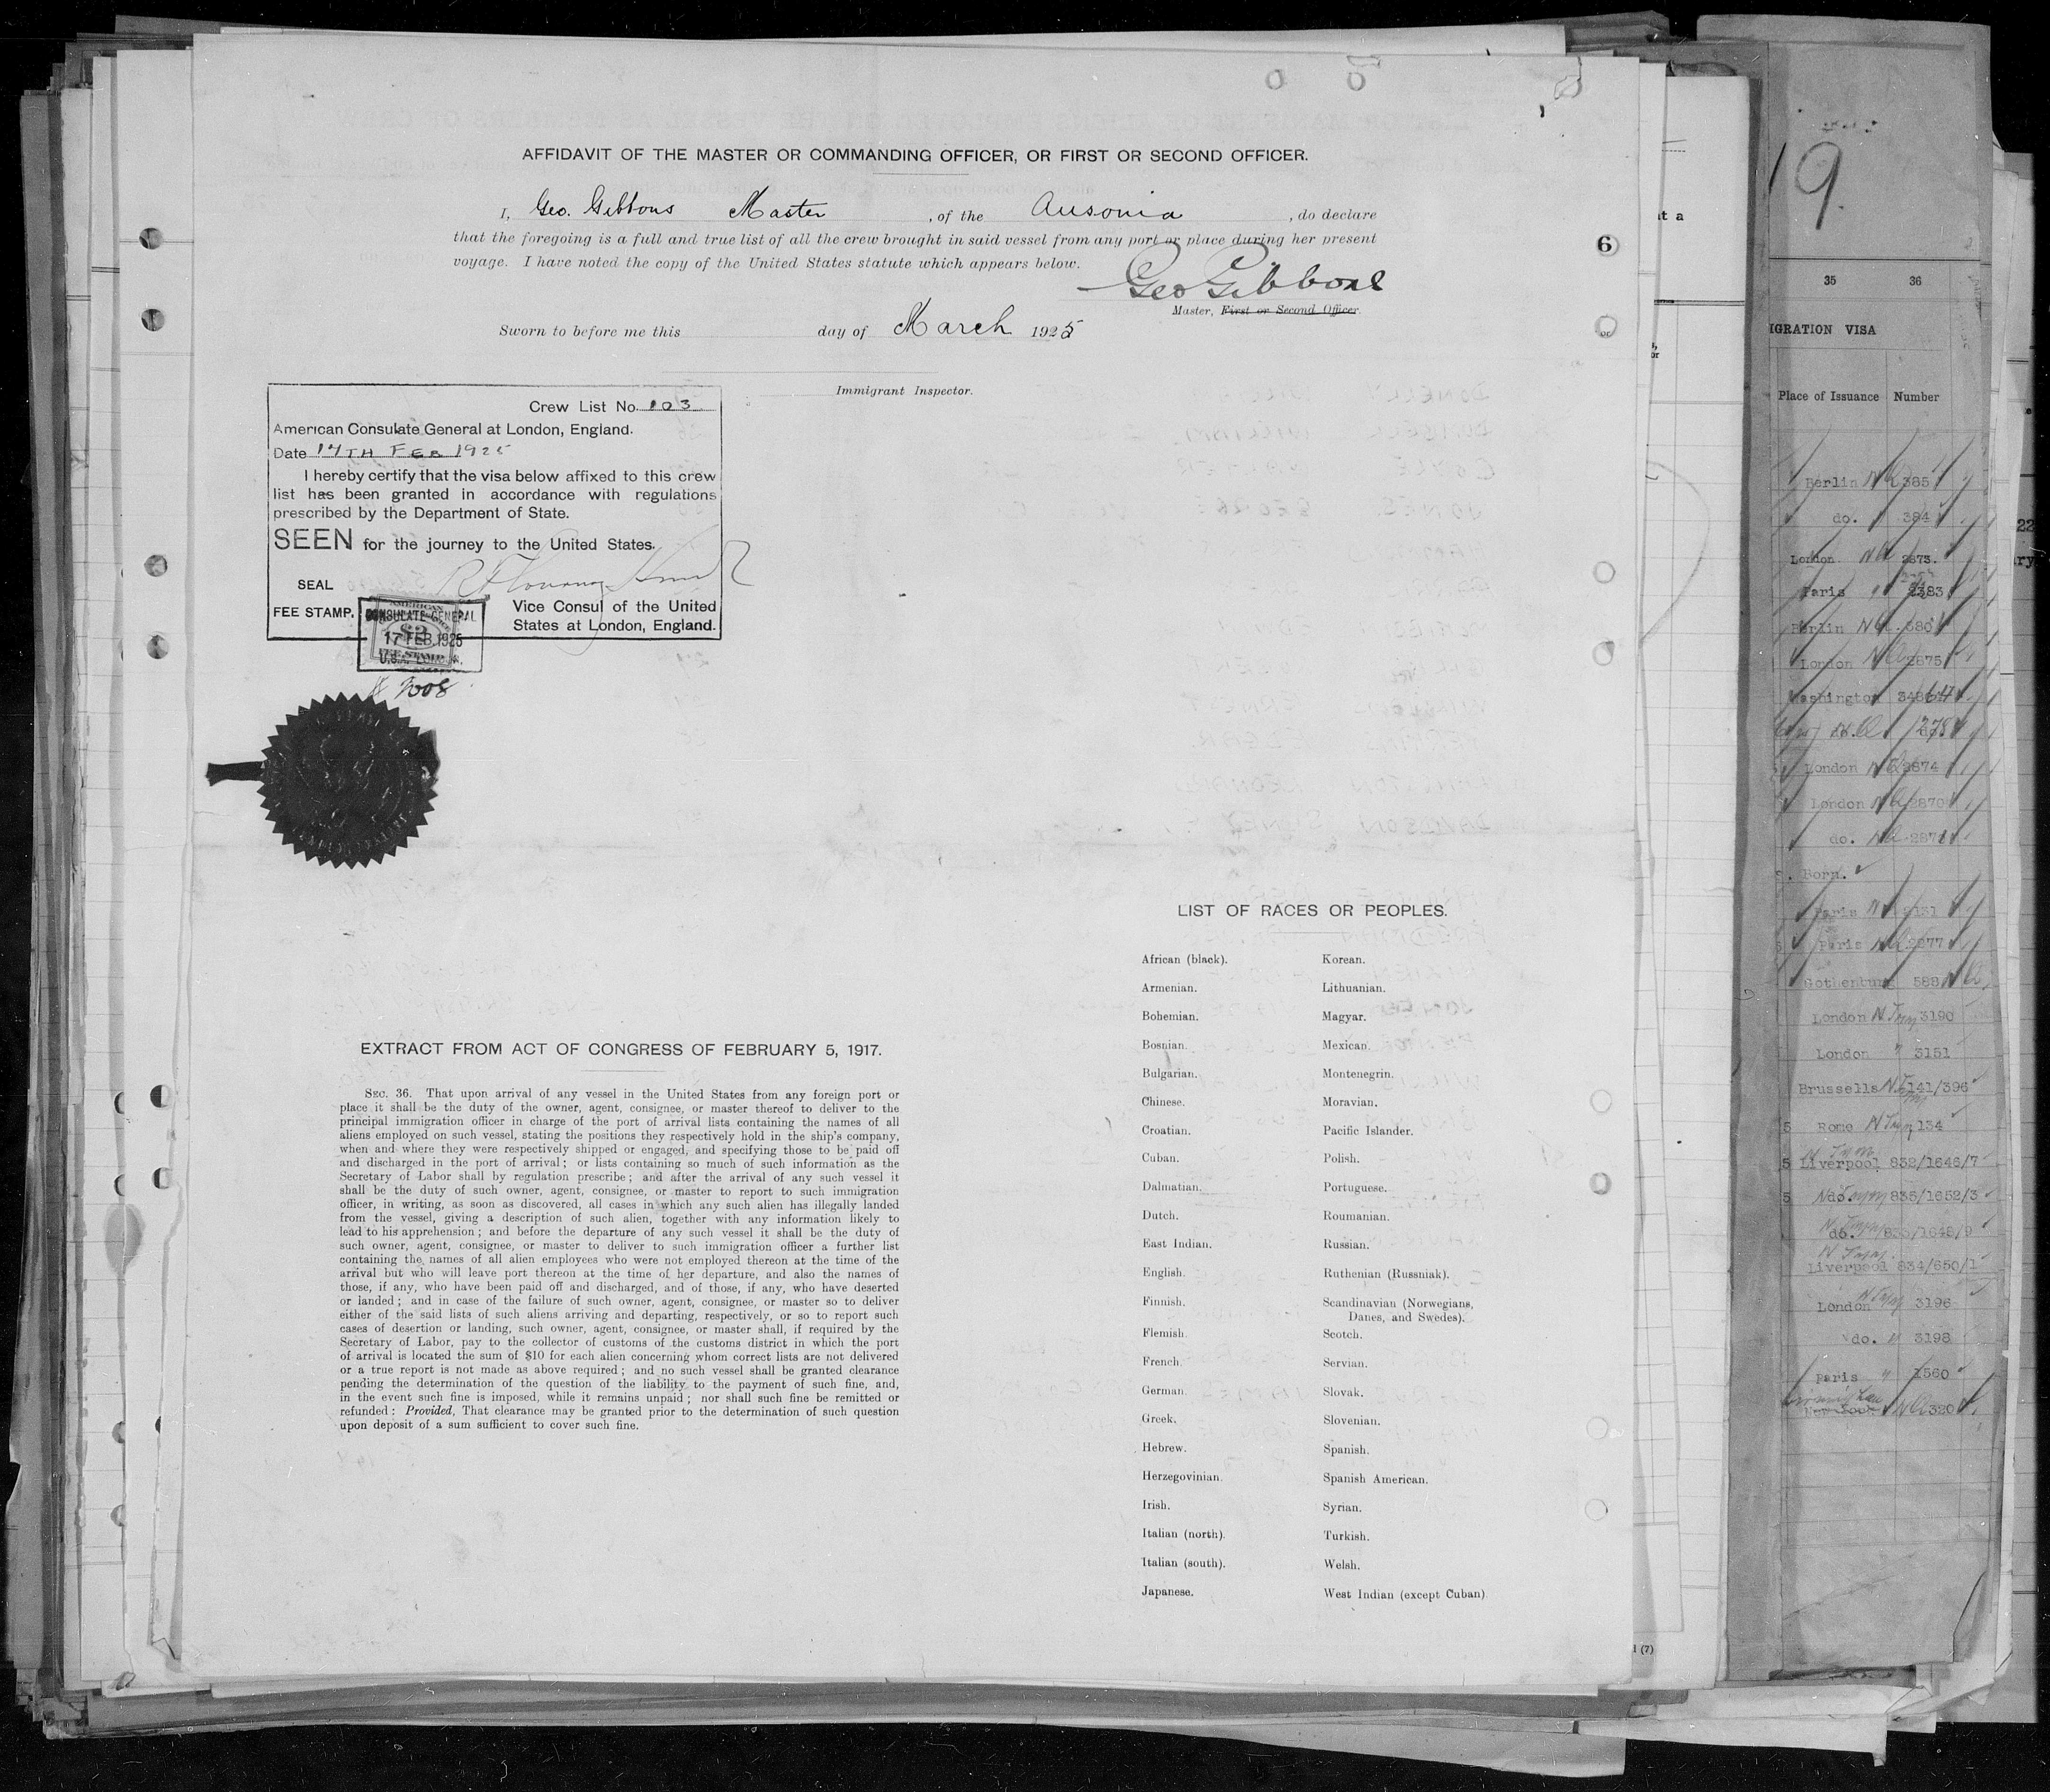 AFFIDAVIT OF THE MASTER OR COMMANDING OFFICER, OR FIRST OR SECOND OFFICER.
I, Geo. Gibbons Master, of the Ausonia, do declare
that the foregoing is a full and true list of all the crew brought in said vessel from any port or place during her present
voyage. I have noted the copy of the United States statute which appears below.
Geo Gibbons
Master, First or Second Officer.
Sworn to before me this day of March 1925
Immigrant Inspector.
6
Crew List No. 103
American Consulate General at London, England.
Date 17TH FEB 1925
I hereby certify that the visa below affixed to this crew
list has been granted in accordance with regulations
prescribed by the Department of State.
SEEN for the journey to the United States.
SEAL
FEE STAMP.
Vice Consul of the United
States at London, England.
AMERICAN
CONSULATE GENERAL
$2
17 FEB 1925
FEE STAMP
U.S.A. LONDON.
LIST OF RACES OR PEOPLES.
African (black). Korean.
Armenian. Lithuanian.
Bohemian. Magyar.
Bosnian. Mexican.
Bulgarian. Montenegrin.
Chinese. Moravian.
Croatian. Pacific Islander.
Cuban. Polish.
Dalmatian. Portuguese.
Dutch. Roumanian.
East Indian. Russian.
English. Ruthenian (Russniak).
Finnish. Scandinavian (Norwegians,
Danes, and Swedes).
Flemish. Scotch.
French. Servian.
German. Slovak.
Greek. Slovenian.
Hebrew. Spanish.
Herzegovinian. Spanish American.
Irish. Syrian.
Italian (north). Turkish.
Italian (south). Welsh.
Japanese. West Indian (except Cuban).
EXTRACT FROM ACT OF CONGRESS OF FEBRUARY 5, 1917.
SEC. 36. That upon arrival of any vessel in the United States from any foreign port or
place it shall be the duty of the owner, agent, consignee, or master thereof to deliver to the
principal immigration officer in charge of the port of arrival lists containing the names of all
aliens employed on such vessel, stating the positions they respectively hold in the ship's company,
when and where they were respectively shipped or engaged, and specifying those to be paid off
and discharged in the port of arrival; or lists containing so much of such information as the
Secretary of Labor shall by regulation prescribe; and after the arrival of any such vessel it
shall be the duty of such owner, agent, consignee, or master to report to such immigration
officer, in writing, as soon as discovered, all cases in which any such alien has illegally landed
from the vessel, giving a description of such alien, together with any information likely to
lead to his apprehension; and before the departure of any such vessel it shall be the duty of
such owner, agent, consignee, or master to deliver to such immigration officer a further list
containing the names of all alien employees who were not employed thereon at the time of the
arrival but who will leave port thereon at the time of her departure, and also the names of
those, if any, who have been paid off and discharged, and of those, if any, who have deserted
or landed; and in case of the failure of such owner, agent, consignee, or master so to deliver
either of the said lists of such aliens arriving and departing, respectively, or so to report such
cases of desertion or landing, such owner, agent, consignee, or master shall, if required by the
Secretary of Labor, pay to the collector of customs of the customs district in which the port
of arrival is located the sum of $10 for each alien concerning whom correct lists are not delivered
or a true report is not made as above required; and no such vessel shall be granted clearance
pending the determination of the question of the liability to the payment of such fine, and,
in the event such fine is imposed, while it remains unpaid; nor shall such fine be remitted or
refunded: Provided, That clearance may be granted prior to the determination of such question
upon deposit of a sum sufficient to cover such fine.
19.
35 36
IGRATION VISA
Place of Issuance Number
Berlin 385
do. 384
London 2873.
Paris 2383
Berlin 380
London 2875
Washington
London 2874
London 2870
do. 2871
Born.
Paris
Paris 2877
Gothenburg 588
London 3190
London 3151
Brussells 141/396
5 Rome 134
5 Liverpool 832/1646/7
5 do. 835/1652/3
do. 833/1648/9
Liverpool 834/650/1
London 3196
do. 3198
Paris 1560
New York 320
(7)